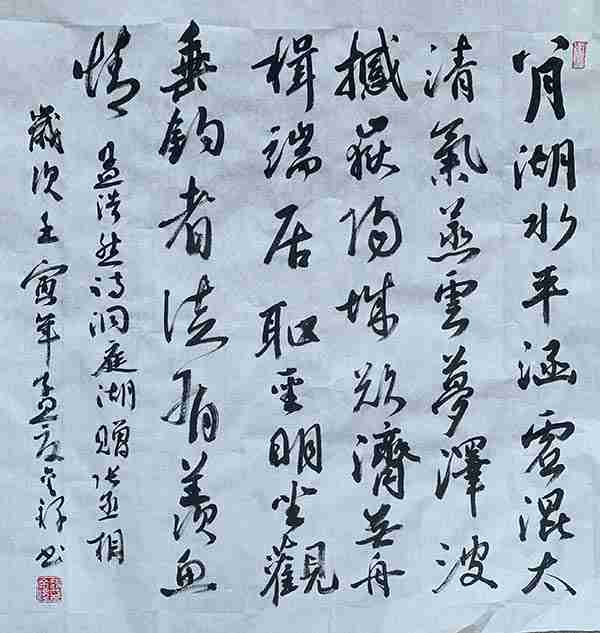 八月湖水平涵虛混太
清氣蒸雲夢澤波
撼嶽陽城欲濟無舟
楫端居耻聖明坐觀
垂釣者徒有羨魚
情 孟浩然詩洞庭湖贈張丞相
歲次壬寅年孟夏祥書